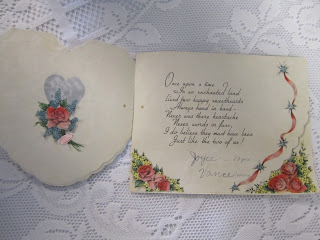 Once upon a time
in an enchanted land
Lived two happy sweethearts
Always hand in hand—
Never was there heartache
Never words in fuss,
I do believe they must have been
Just like the two of us!
Joyce
Vance